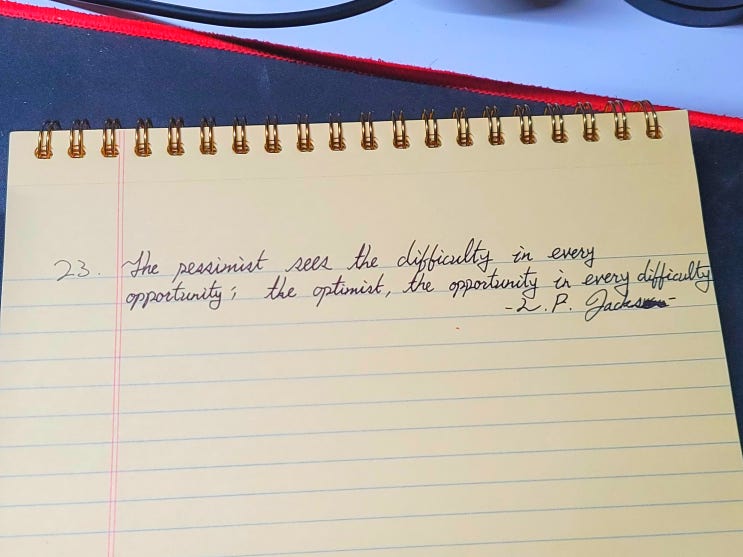 23. The pessimist sees the difficulty in every
opportunity; the optimist, the opportunity in every difficulty
- L. P.